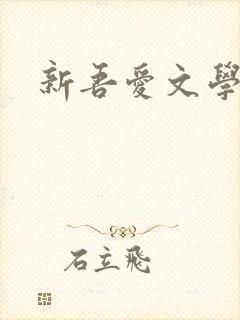 新吾愛文學
石立飛